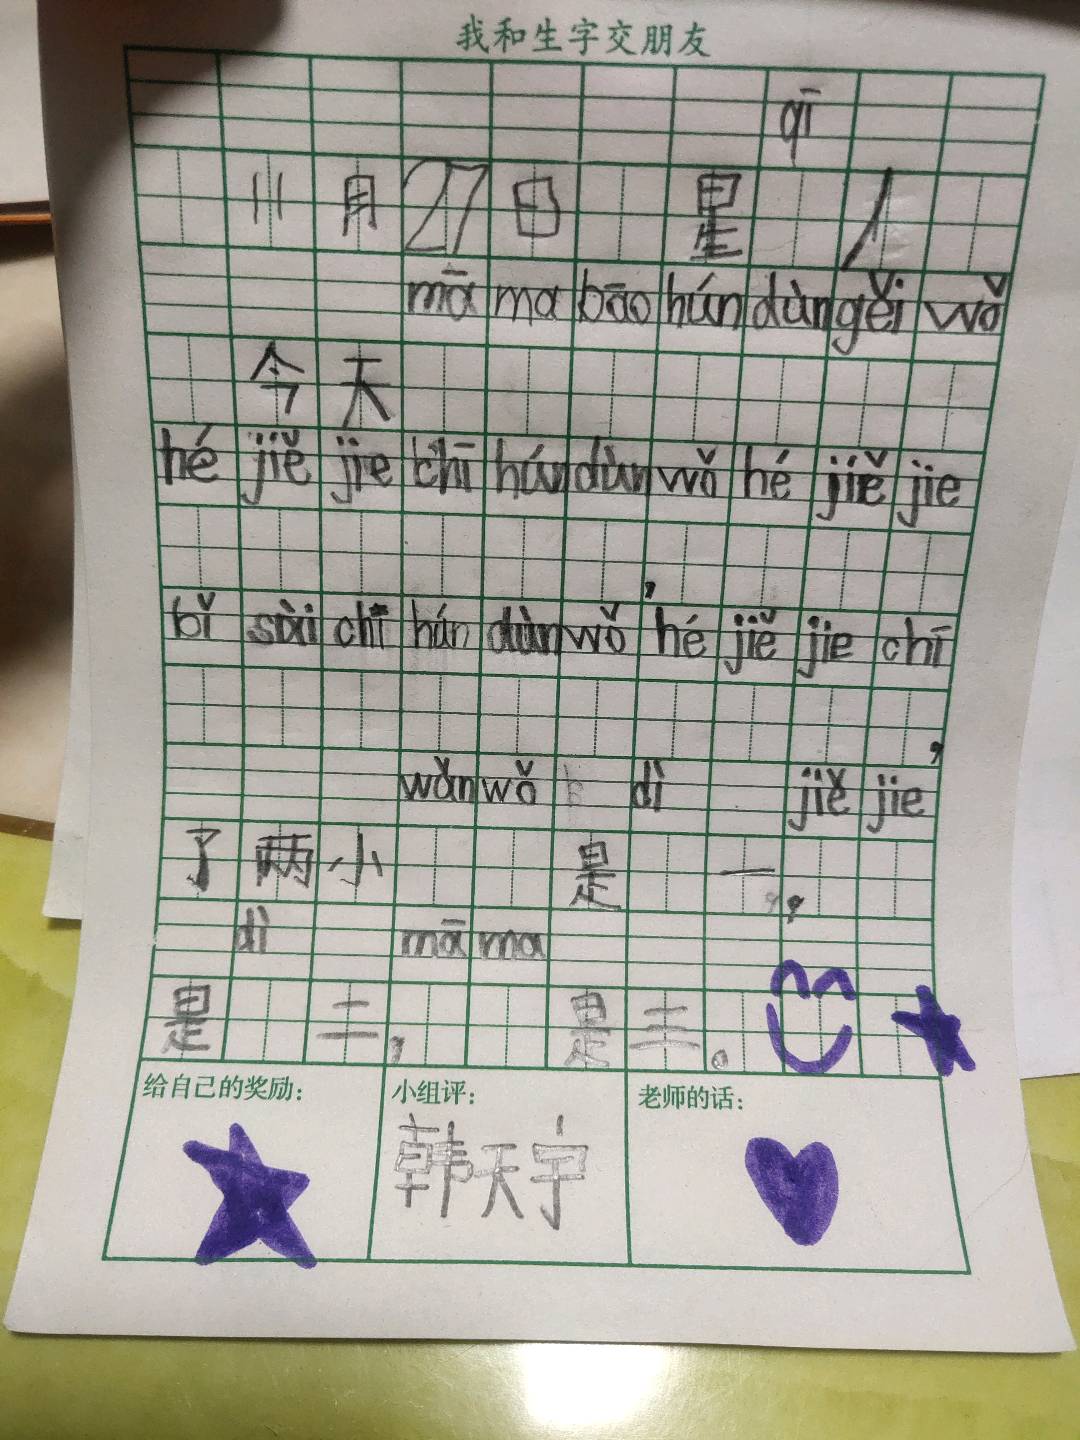 我和生字交朋友
qī
11月27日 星 八
māma bāo húndùn gěi wǒ
今天
hé jiě jie chī húndùn wǒ hé jiě jie
,
bǐ sài chī húndùn wǒ hé jiě jie chī
,
wǎn wǒ dì jiě jie
了两小 是 一,
dì māma
是 二, 是 三。
给自己的奖励: 小组评: 老师的话:
韩天宇